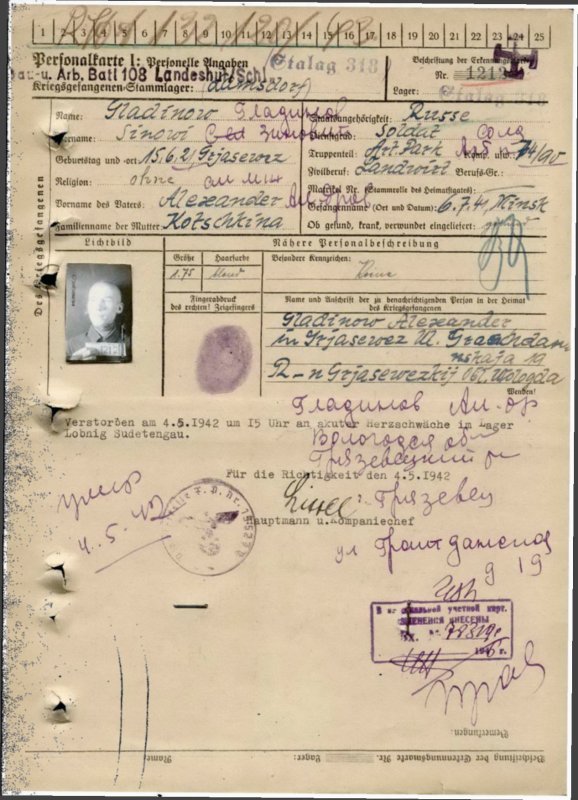 1 2 3 4 5 6 7 8 9 10 11 12 13 14 15 16 17 18 19 20 21 22 23 24 25
Personalkarte I: Personelle Angaben
Stalag 318
Beschriftung der Erkennungsmarke
u. Arb. Batl 108 Landeshut/Schl.
Nr. 1213
Kriegsgefangenen-Stammlager: (Lamsdorf)
Lager: Stalag 318
Des Kriegsgefangenen
Name: Gladinow Гладинов
Staatsangehörigkeit: Russe
Vorname: Sinowi Зиновий
Dienstgrad: Soldat Солд
Geburtstag und -ort: 15.6.21 Grjasewez
Truppenteil: Art Park Komp. usw.:
Religion: ohne
Zivilberuf: Landwirt Berufs-Gr.:
Matrikel Nr. (Stammrolle des Heimatstaates):
Vorname des Vaters: Alexander
Gefangennahme (Ort und Datum): 6.7.41 Minsk
Familienname der Mutter: Kotschkina
Ob gesund, krank, verwundet eingeliefert:
Lichtbild
Nähere Personalbeschreibung
Größe Haarfarbe Besondere Kennzeichen:
1.75 blond Keine
Fingerabdruck
des rechten! Zeigefingers
Name und Anschrift der zu benachrichtigenden Person in der Heimat
des Kriegsgefangenen
Gladinow Alexander
in Grjasewez Ul. Grashdan
nskaja 19
R-n Grjasewezkij Obl. Wologda
Wenden!
Гладинов Ал-др
Verstorben am 4.5.1942 um 15 Uhr an akuter Herzschwäche im Lager
Lobnig Sudetengau.
Вологодск об
Грязевецкий р
Für die Richtigkeit den 4.5.1942
умер
г. Грязевец
4.5.42
Hauptmann u.Kompaniechef
ул Гражданская
д 19
В персональной учетной карт.
ИЗМЕНЕНИЯ ВНЕСЕНЫ
Вх. №
194 г.
Bemerkungen:
Beschriftung der Erkennungsmarke Nr. Lager: Name: